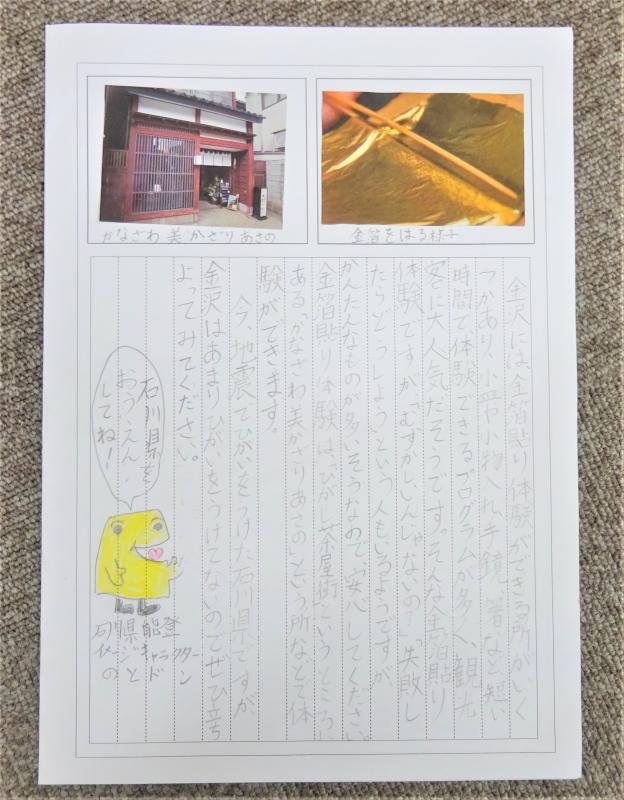 かなざわ 美かざり あさの
金箔をはる様子
金沢には金箔貼り体験ができる所がいく
つかあり、小皿や小物入れ、手鏡、箸など短い
時間で体験できるプログラムが多く、観光
客に大人気だそうです。そんな金箔貼り
体験ですが、「むずかしいんじゃないの?」「失敗し
たらどうしよう」という人もいるようですが、
かんたんなものが多いそうなので、安心してください。
金箔貼り体験は、「ひがし茶屋街」というところに
ある「かなざわ美かざりあさの」という所などで体
験ができます。
今、地震でひがいをうけた石川県ですが、
金沢はあまりひがいをうけてないのでぜひ立ち
よってみてください。
石川県を
おうえん
してね!
石川県能登
イメージキャラクター
のとドン